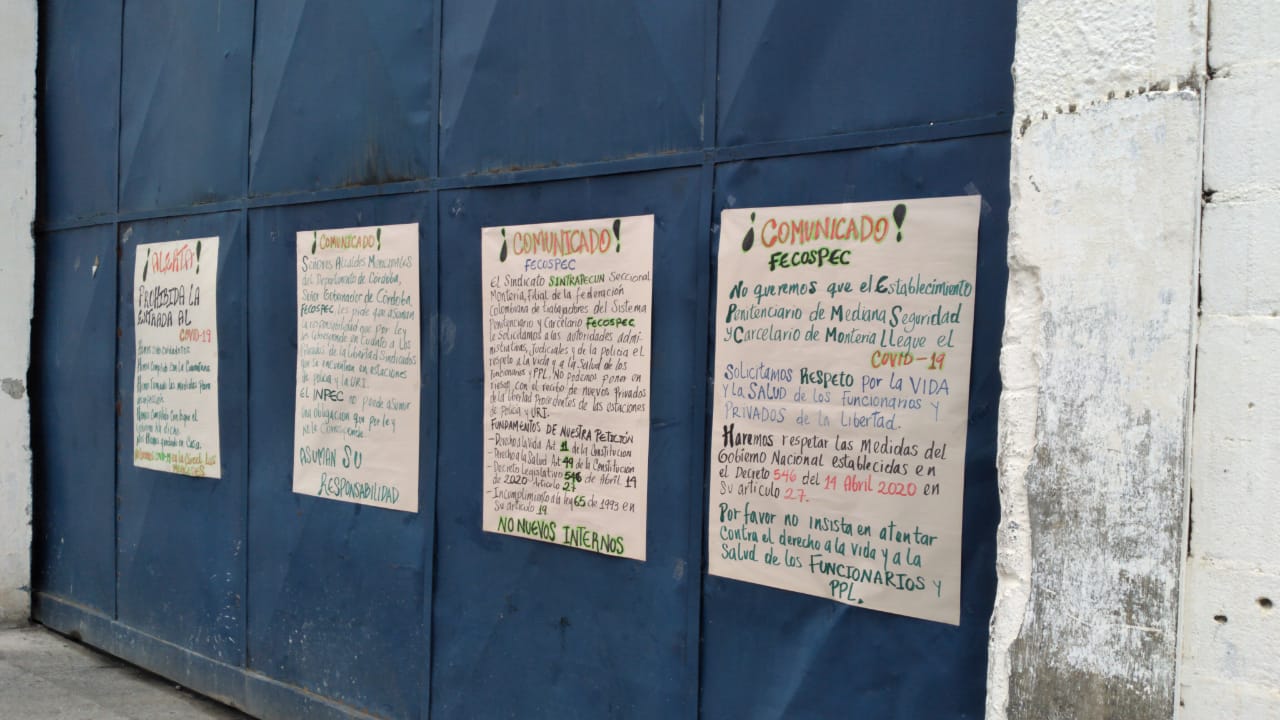 ¡ALERTA!
PROHIBIDA LA
ENTRADA AL
COVID-19
¡COMUNICADO!
Señores Alcaldes Municipales
del Departamento de Córdoba,
Señor Gobernador de Córdoba,
FECOSPEC les pide que asuman
la responsabilidad que por ley
les corresponde en cuanto a los
Privados de la Libertad Sindicados
que se encuentran en estaciones
de policía y la URI.
El INPEC no puede asumir
una obligación que por ley
no le corresponde.
ASUMAN SU
RESPONSABILIDAD
¡COMUNICADO!
FECOSPEC
El Sindicato SINTRAPECUN Seccional
Montería, Filial de la Federación
Colombiana de trabajadores del Sistema
Penitenciario y Carcelario FECOSPEC
Le Solicitamos a las autoridades admi-
nistrativas, Judiciales y de la policía el
respeto a la vida y a la Salud de los
funcionarios y PPL. NO Podemos poner en
riesgo con el recibo de nuevos Privados
de la libertad Procedentes de las estaciones
de Policía y URI.
FUNDAMENTOS DE NUESTRA PETICIÓN
- Derecho a la Vida Art 11 de la Constitucion
- Derecho a la Salud Art 49 de la Constitución
- Decreto Legislativo 546 de Abril 14
de 2020 Articulo 27
- Incumplimiento a la ley 65 de 1993 en
Su articulo 19
NO NUEVOS INTERNOS
¡COMUNICADO!
FECOSPEC
No queremos que el Establecimiento
Penitenciario de Mediana Seguridad
y Carcelario de Montería LLegue el
COVID-19
Solicitamos RESPETO por la VIDA
y la SALUD de los funcionarios y
PRIVADOS de la Libertad.
Haremos respetar las Medidas del
Gobierno Nacional establecidas en
el Decreto 546 del 14 Abril 2020 en
Su artículo 27.
Por favor no insista en atentar
Contra el derecho a la vida y a la
Salud de los FUNCIONARIOS y
PPL.